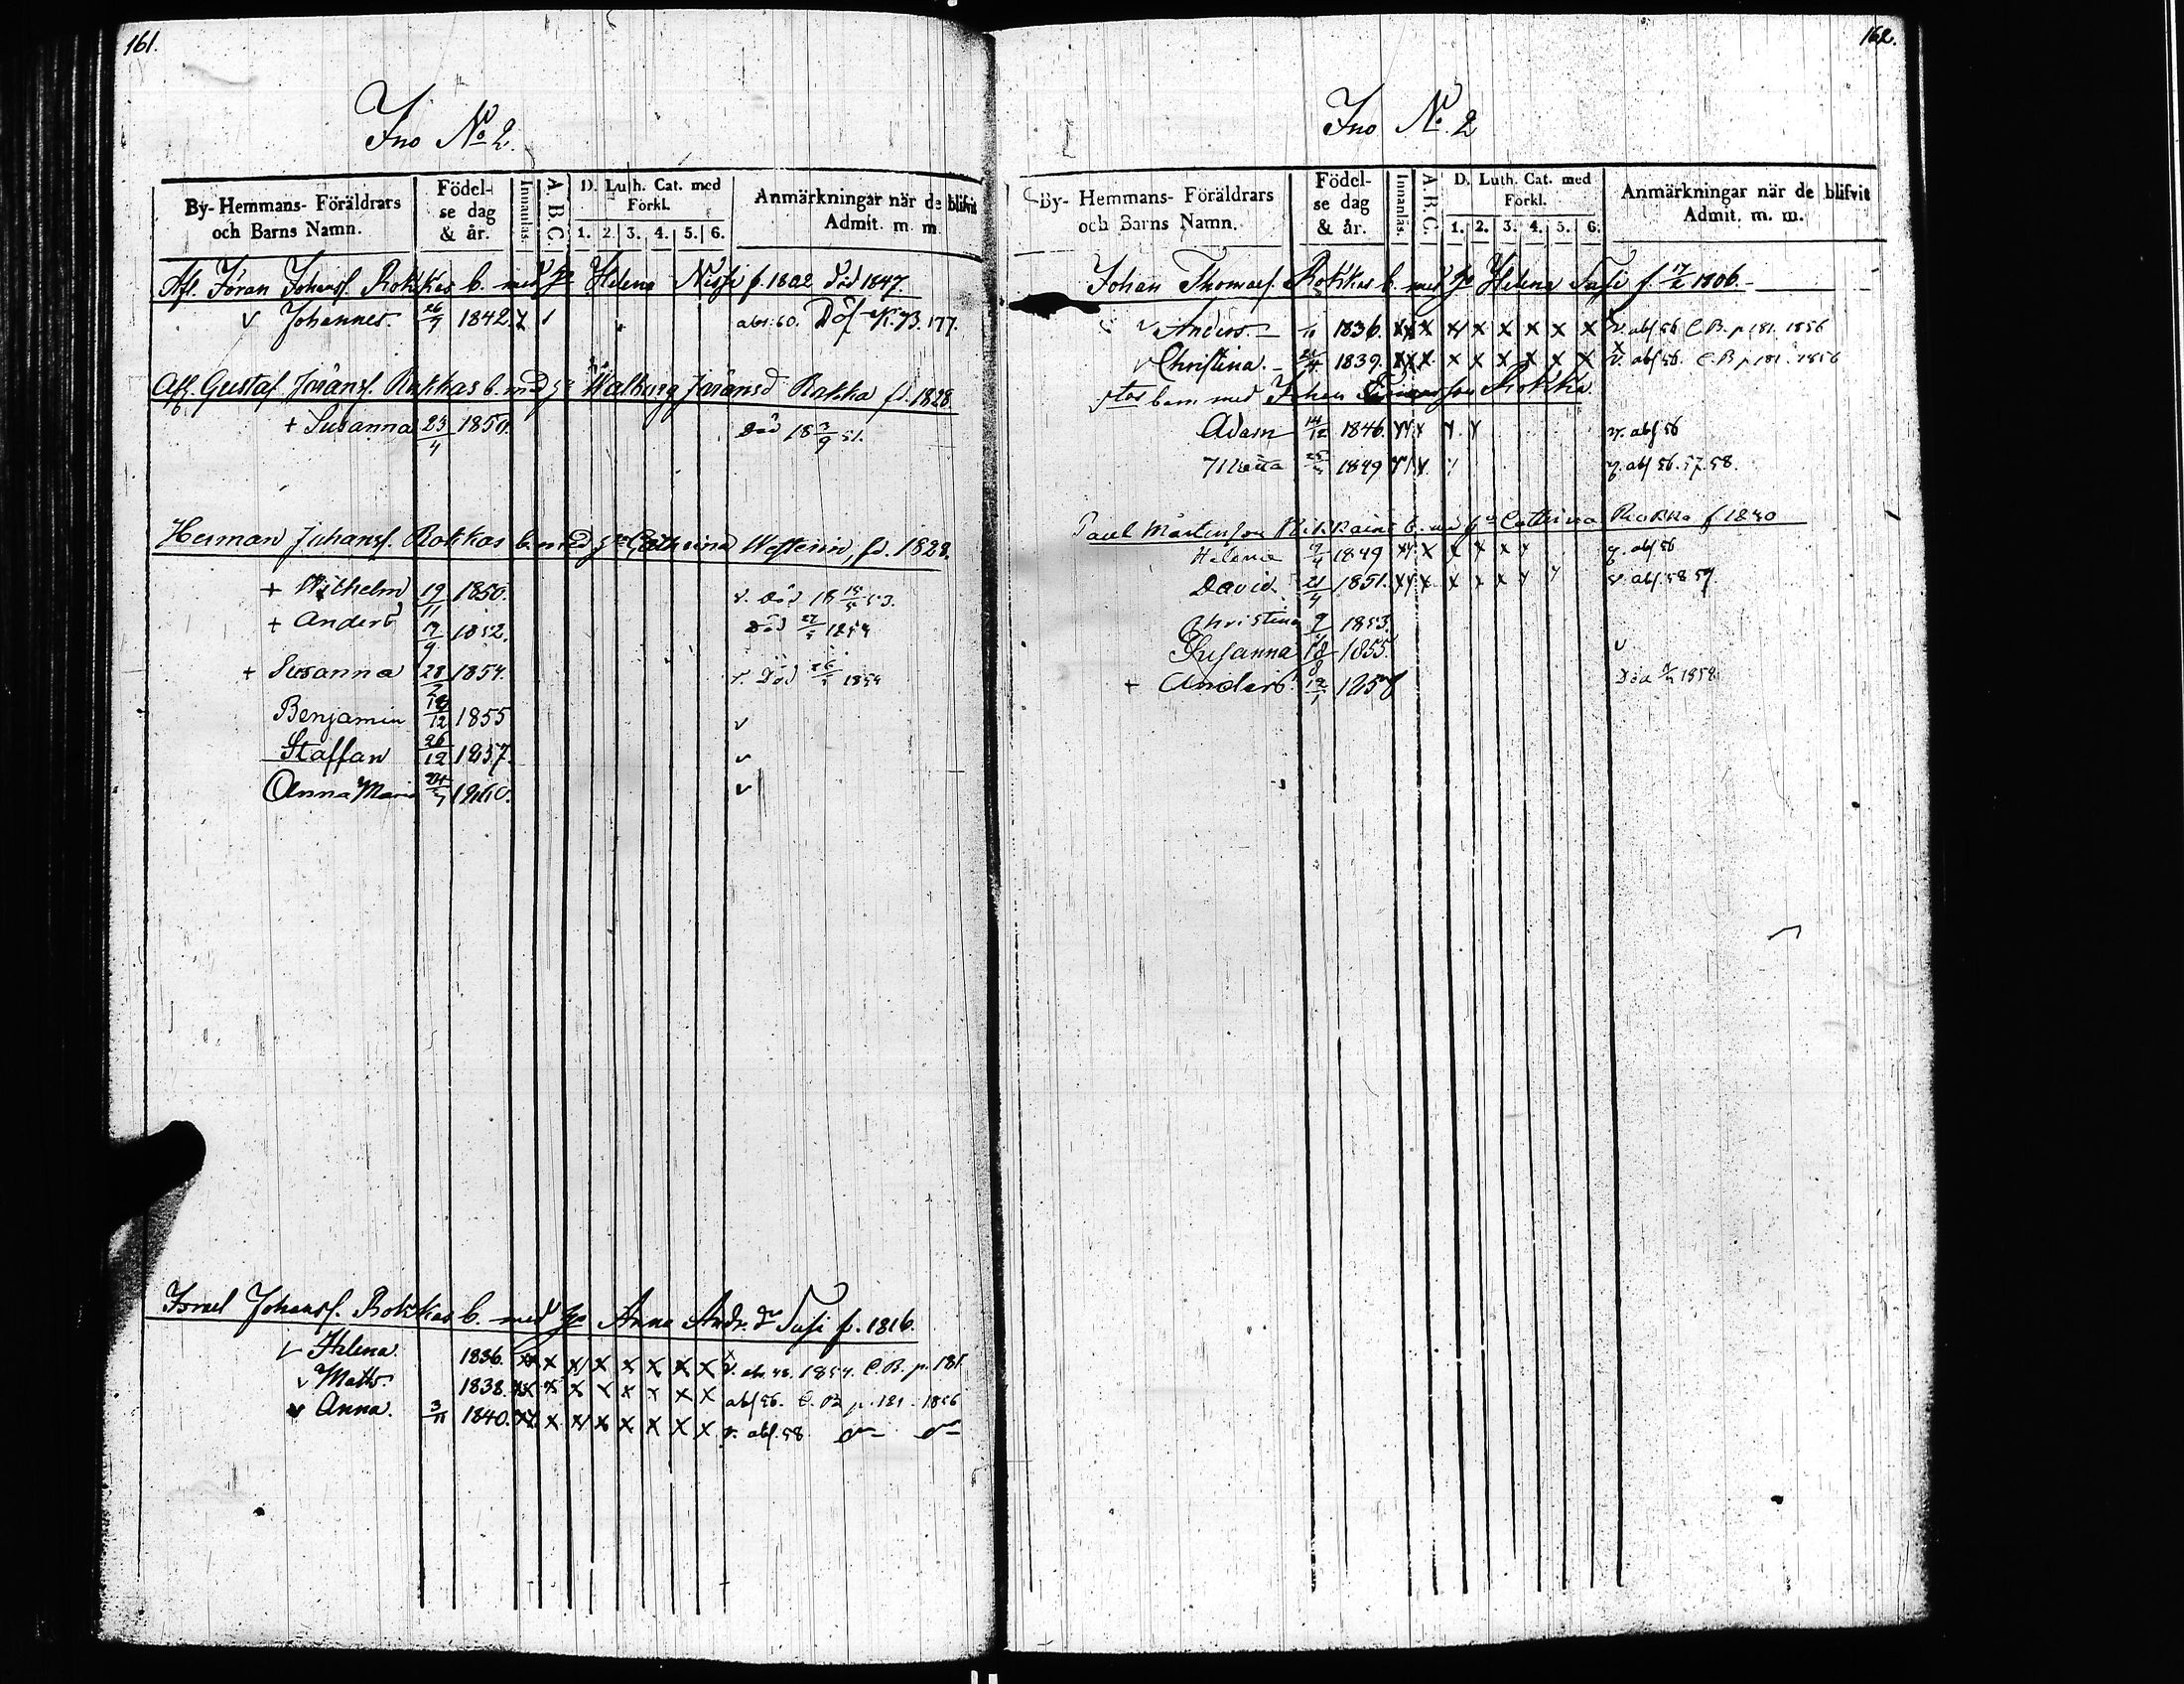 161.
Ino No 2.
By- Hemmans- Föräldrars och Barns Namn.
Födelse dag & år.
Innanläs.
A.B.C.
D. Luth. Cat. med Förkl.
1. 2. 3. 4. 5. 6.
Anmärkningar när de blifvit Admit. m. m.
Afl. Jöran Johansf. Rokkas b. med Helena f. 1802 död 1847.
v Johannes. 26/7 1842. x 1 abs. 60. Döf K.B. 177.
Afl. Gustaf Jöransf. Rokkas b. med Walborg Jöransd Rokka fd. 1828
+ Susanna 23/4 1850. död 18 3/9 51.
Herman Johansf. Rokkas b. med Catharina Westerin, fd. 1828.
+ Wilhelm 19/11 1850. v. död 18 53.
+ Anders 1852. död 1854
+ Susanna 28/2 1854. v. Död 1854
Benjamin 1855 v
Staffan 26/12 1857. v
Anna Maria 1860. v
Israel Johansf. Rokkas b. med Anna Andr. dr Tusi f. 1816.
v Helena. 1836. xx x x x x x x x v. 1854. C.B. p. 181.
v Matts. 1838. xx x x x x x x x abs 56. C. B p. 181. 1856
v Anna. 3/11 1840. xx x x x x x x x v. abs. 58
162.
Ino No. 2
By- Hemmans- Föräldrars och Barns Namn.
Födelse dag & år.
Innanläs.
A.B.C.
D. Luth. Cat. med Förkl.
1. 2. 3. 4. 5. 6.
Anmärkningar när de blifvit Admit. m. m.
Johan Thomasf. Rokkas b. med Helena Tusi f. 17/2 1806.
v Anders. 1836. xx x x x x x x x v. abs 56 C.B. p 181. 1856
v Christina. 1839. xx x x x x x x x v. abs 56. C.B p 181. 1856
barn med Johan Rokka.
Adam 14/12 1846. xx x x x v. abs 56
1849 v. abs 56. 57. 58.
Paul Mårtensson b. med Cathrina Rokka f 1830
Helena 1849 xx x x x x x v. abs 56
David 21/4 1851. xx x x x x x x v. abs. 58 59
Christina 1853.
Susanna 18/8 1855. v
+ Anders. 1858 Död 1858